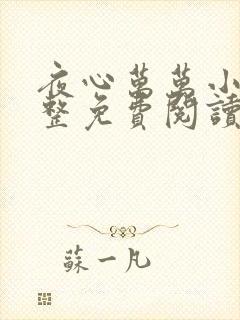 夜心萬萬小
整免費閱讀
蘇一凡